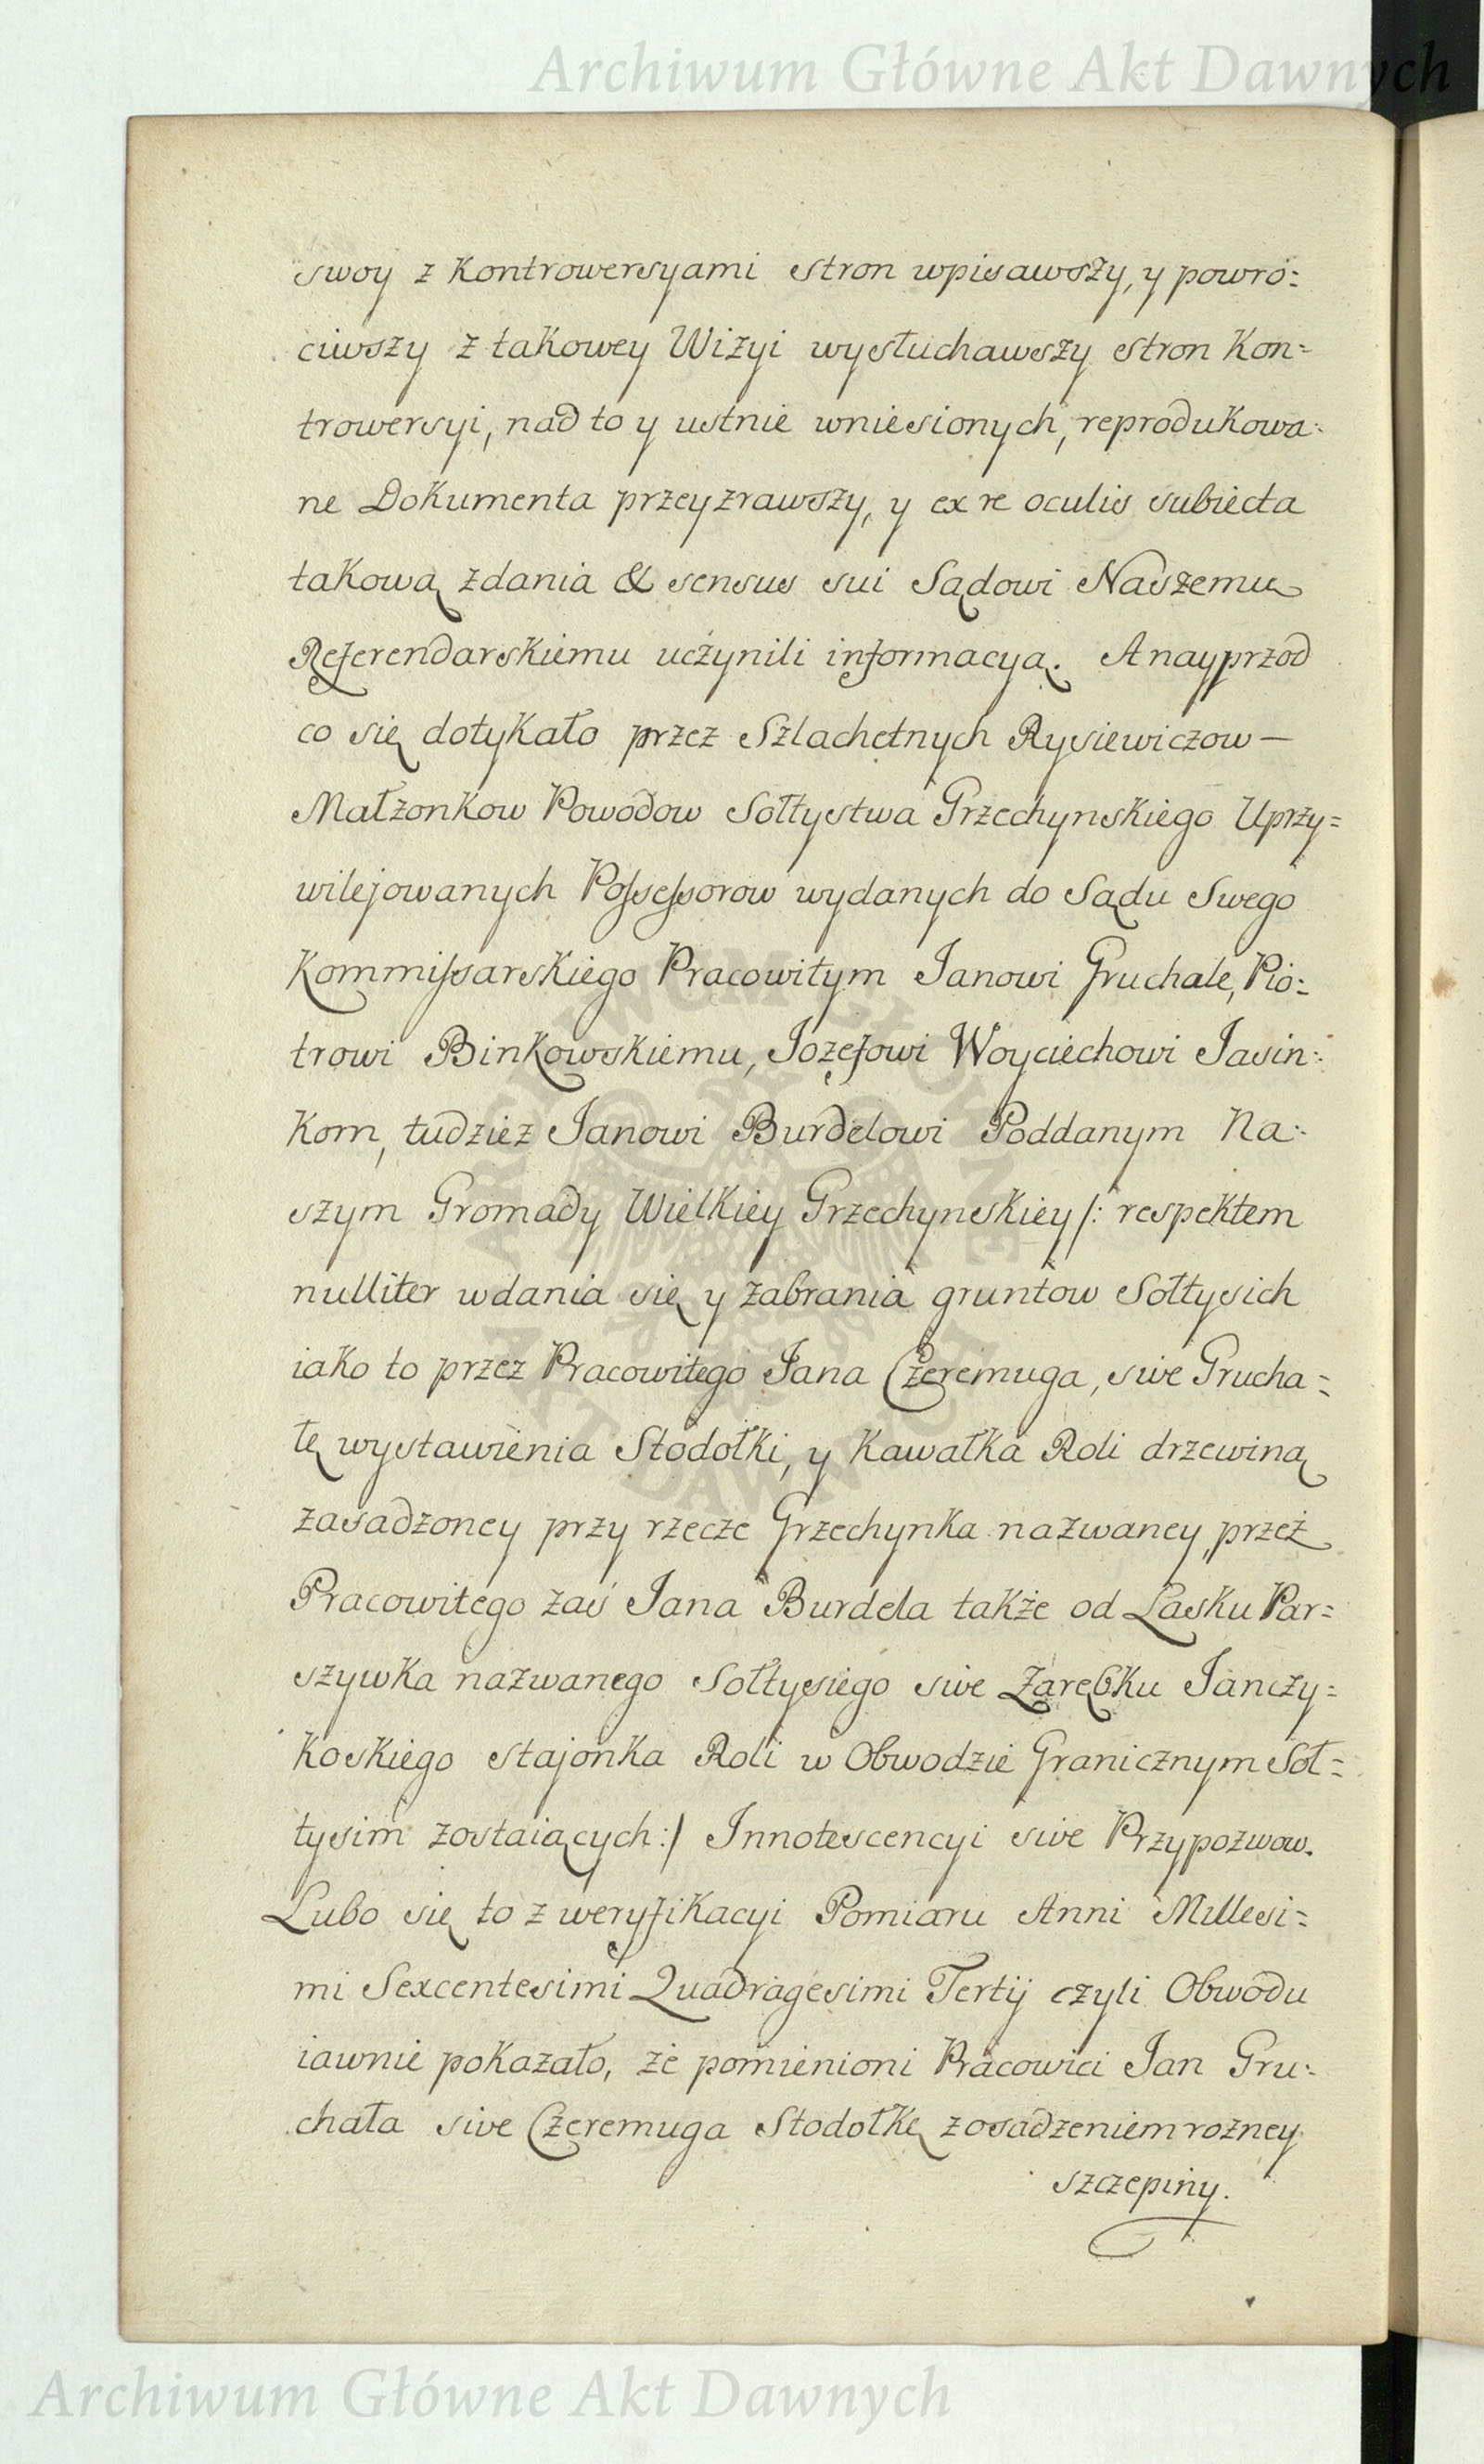 Archiwum Główne Akt Dawnych
swoy z Kontrowersyami stron wpisawszy, y powró=
ciwszy z takowey Wizyi wysłuchawszy stron Kon=
trowersyi, nad to y ustnie wniesionych, reprodukowa=
ne Dokumenta przeyzrawszy, y ex re oculis subiecta
takową zdania & sensus sui Sądowi Naszemu
Referendarskiemu uczynili informacyą. A nayprzod
co się dotykało przez Szlachetnych Rysiewiczow —
Małzonkow Powodow Sołtystwa Grzechynskiego Uprzy=
wilejowanych Possessorow wydanych do Sądu Swego
Kommissarskiego Pracowitym Janowi Gruchale, Pio=
trowi Binkowskiemu, Jozefowi Woyciechowi Jasin=
kom, tudziez Janowi Burdelowi Poddanym Na=
szym Gromady Wielkiey Grzechynskiey /: respektem
nulliter wdania się y zabrania gruntow Sołtysich
iako to przez Pracowitego Jana Czeremuga, sive Grucha=
łę wystawienia Stodołki, y Kawałka Roli drzewiną
zasadzoney przy rzecze Grzechynka nazwaney, przez
Pracowitego zaś Jana Burdela także od Lasku Par=
szywka nazwanego Sołtysiego sive Zarębku Janczy=
koskiego stajonka Roli w Obwodzie Granicznym Soł=
tysim zostaiących :/ Innotescencyi sive Przypozwow.
Lubo się to z weryfikacyi Pomiaru Anni Millesi=
mi Sexcentesimi Quadragesimi Tertij czyli Obwodu
iawnie pokazało, że pomienioni Pracowici Jan Gru=
chała sive Czeremuga Stodołkę z osadzeniem rozney
szczepiny.
Archiwum Główne Akt Dawnych